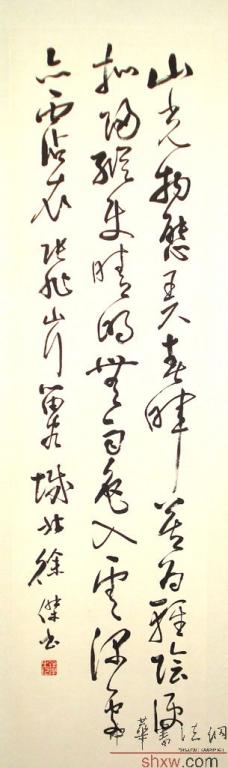 山光物態弄春暉莫為輕陰便
擬歸縱使晴明無雨色入雲深處
亦霑衣 張旭山行留客 城北徐傑書
華書法網
shxw.com